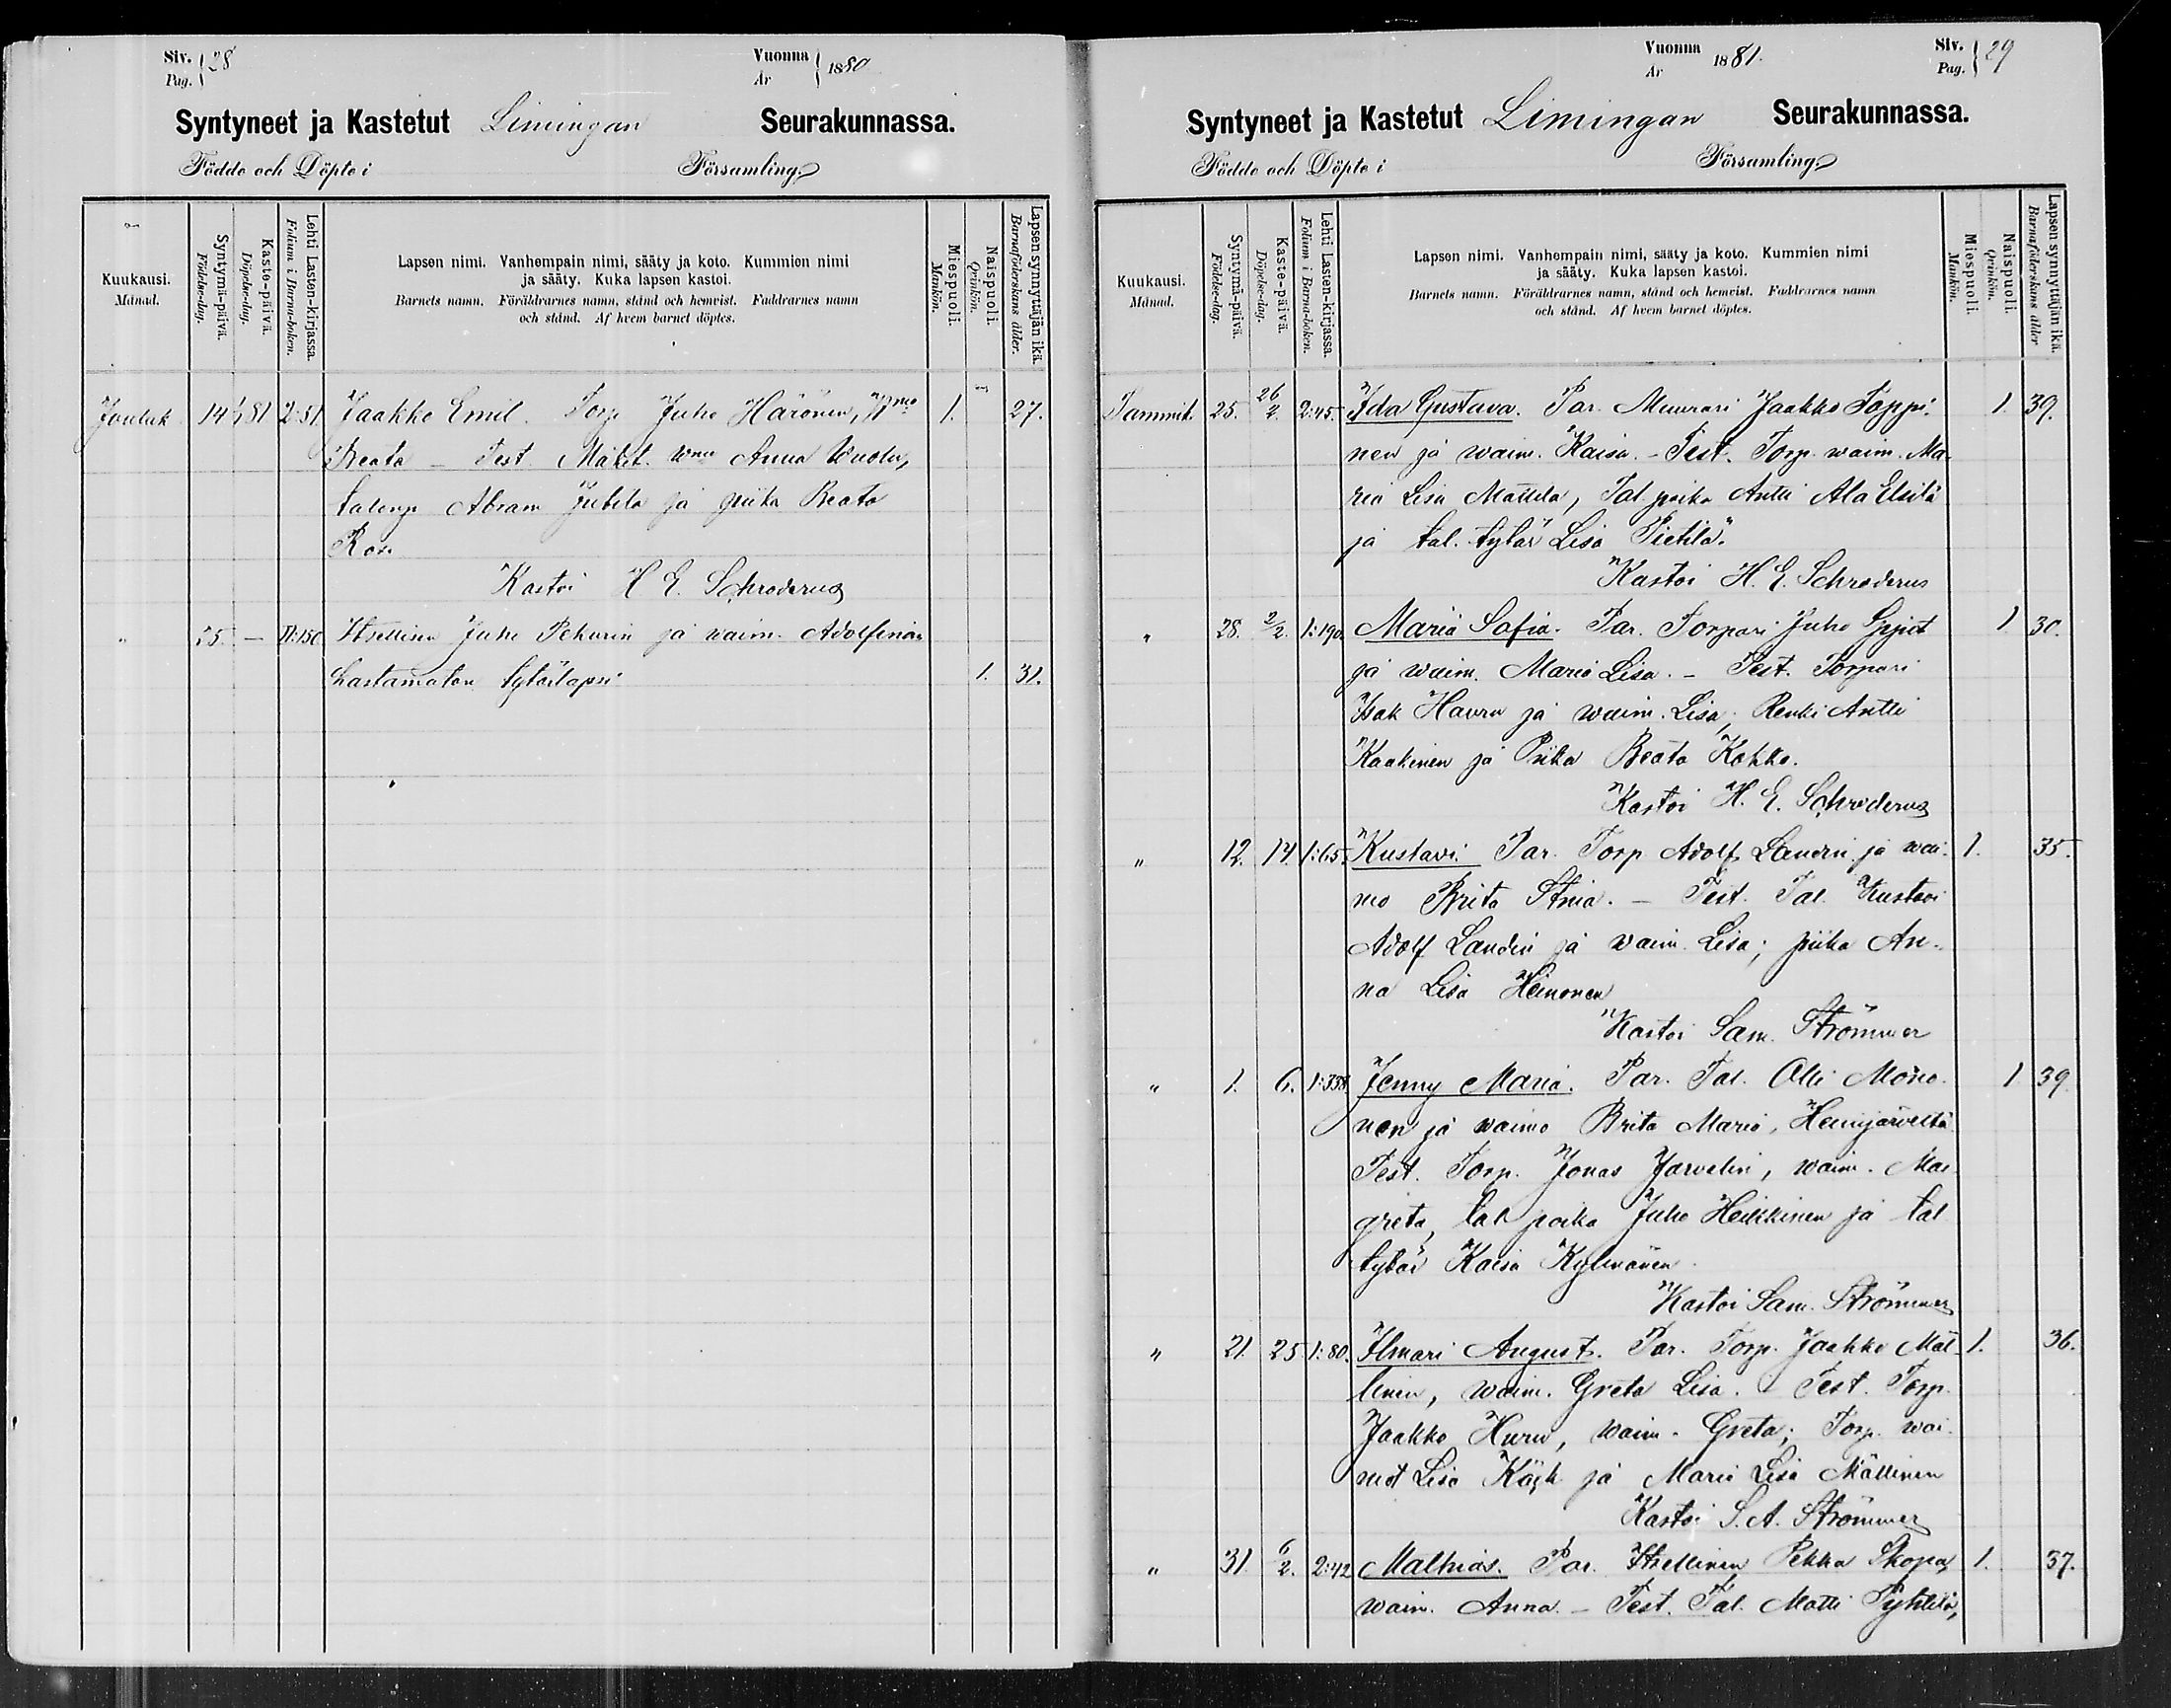 Siv. 28
Pag.
Vuonna 1880
Ar
Syntyneet ja Kastetut Limingan Seurakunnassa.
Födde och Döpte i Församling
Kuukausi. Månad.
Syntymä-päivä. Födelse-dag.
Kaste-päivä. Döpelse-dag.
Lehti Lasten-kirjassa. Folium i Barna-boken.
Lapsen nimi. Vanhempain nimi, sääty ja koto. Kummien nimi
ja sääty. Kuka lapsen kastoi.
Barnets namn. Föräldrarnes namn, stånd och hemvist. Faddrarnes namn
och stånd. Af hvem barnet döptes.
Miespuoli. Mankön.
Naispuoli. Qvinkön.
Lapsen synnyttäjän ikä. Barnaföderskans ålder.
Jouluk 14 81 2:51 Jaakko Emil. Torp Juho Härönen, 1. 27.
Beata — Test. Anna
Abram ja piika Beata
Kastoi H E. Schroderus
" 25. — II:150 Itsellinen Juho Pekurin ja waim. Adolfinan
kastamaton tytärlapsi 1. 31.
Vuonna 1881.
Ar
Siv. 29
Pag.
Syntyneet ja Kastetut Limingan Seurakunnassa.
Födde och Döpte i Församling
Kuukausi. Månad.
Syntymä-päivä. Födelse-dag.
Kaste-päivä. Döpelse-dag.
Lehti Lasten-kirjassa. Folium i Barna-boken.
Lapsen nimi. Vanhempain nimi, sääty ja koto. Kummien nimi
ja sääty. Kuka lapsen kastoi.
Barnets namn. Föräldrarnes namn, stånd och hemvist. Faddrarnes namn
och stånd. Af hvem barnet döptes.
Miespuoli. Mankön.
Naispuoli. Qvinkön.
Lapsen synnyttäjän ikä. Barnaföderskans ålder
Tammik. 25. 26/2. 2:45. Ida Gustava. Par. Muurari Jaakko Toppi- 1. 39.
nen ja waim. Kaisa. - Test. Torp. waim. Ma-
ria Lisa Mattila, Tal. poika Antti Ala Elsilä
ja tal. tytär Lisa Pietilä.
Kastoi H. E. Schroderus
" 28. 2/2. 1:190. Maria Sofia. Par. Torpari Juho 1 30.
ja waim. Maria Lisa. - Test. Torpari
Isak Hauru ja waim. Lisa, Renki Antti
Kaakinen ja Piika Beata Kokko.
Kastoi H. E. Schroderus
" 12. 14. 1:65. Kustavi. Par. Torp Adolf Landin ja wai- 1. 35.
mo Brita Stina. — Test. Tal. Kustavi
Adolf Landin ja waim. Lisa; piika An-
na Lisa Heinonen
Kastoi Sam. Strömmer
" 1. 6. 1:338. Jenny Maria. Par. Tal. Olli 1 39.
nen ja waimo Brita Maria, Heinijärveltä
Test. Torp. Jonas Jarvelin, waim. Mar-
greta, tal poika Juho Heikkinen ja tal
tytär Kaisa Kylmänen.
Kastoi Sam. Strömmer
" 21. 25 1:80. Ilmari August. Par. Torp. Jaakko Mäl- 1. 36.
linen, waim. Greta Lisa. - Test. Torp.
Jaakko Huru, waim. Greta; Torp. wai-
mot Lisa ja Maria Lisa Mällinen
Kastoi S. A. Strömmer
" 31. 6/2. 2:42 Mathias. Par. Itsellinen Pekka Skopa, 1. 37.
waim. Anna. - Test. Tal. Matti Pyhtilä,